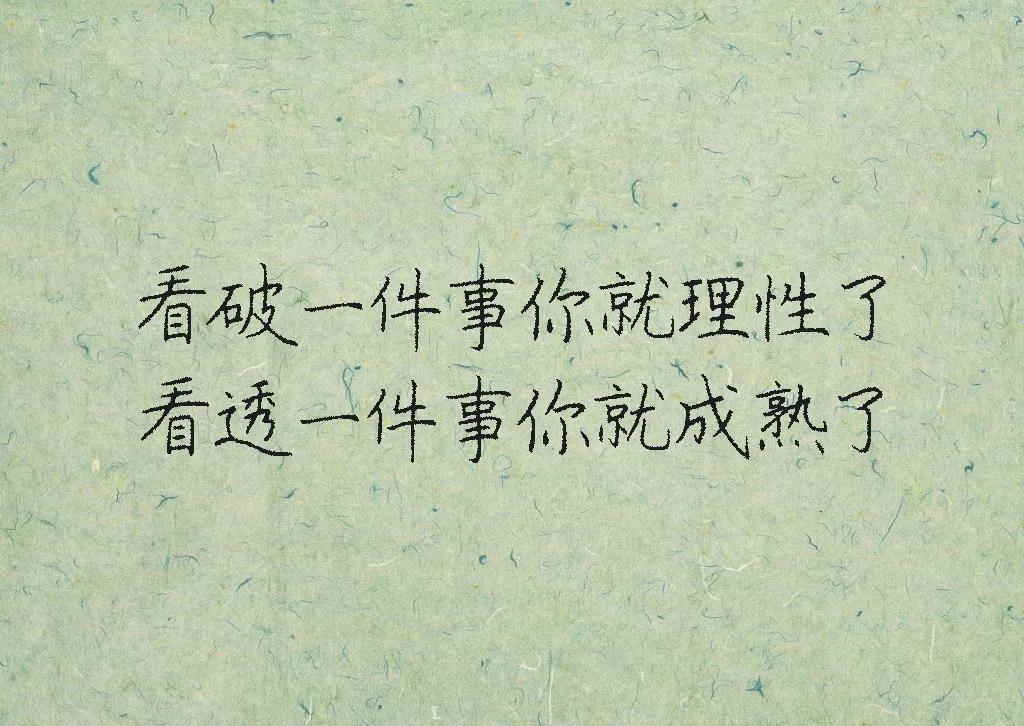 看破一件事你就理性了
看透一件事你就成熟了